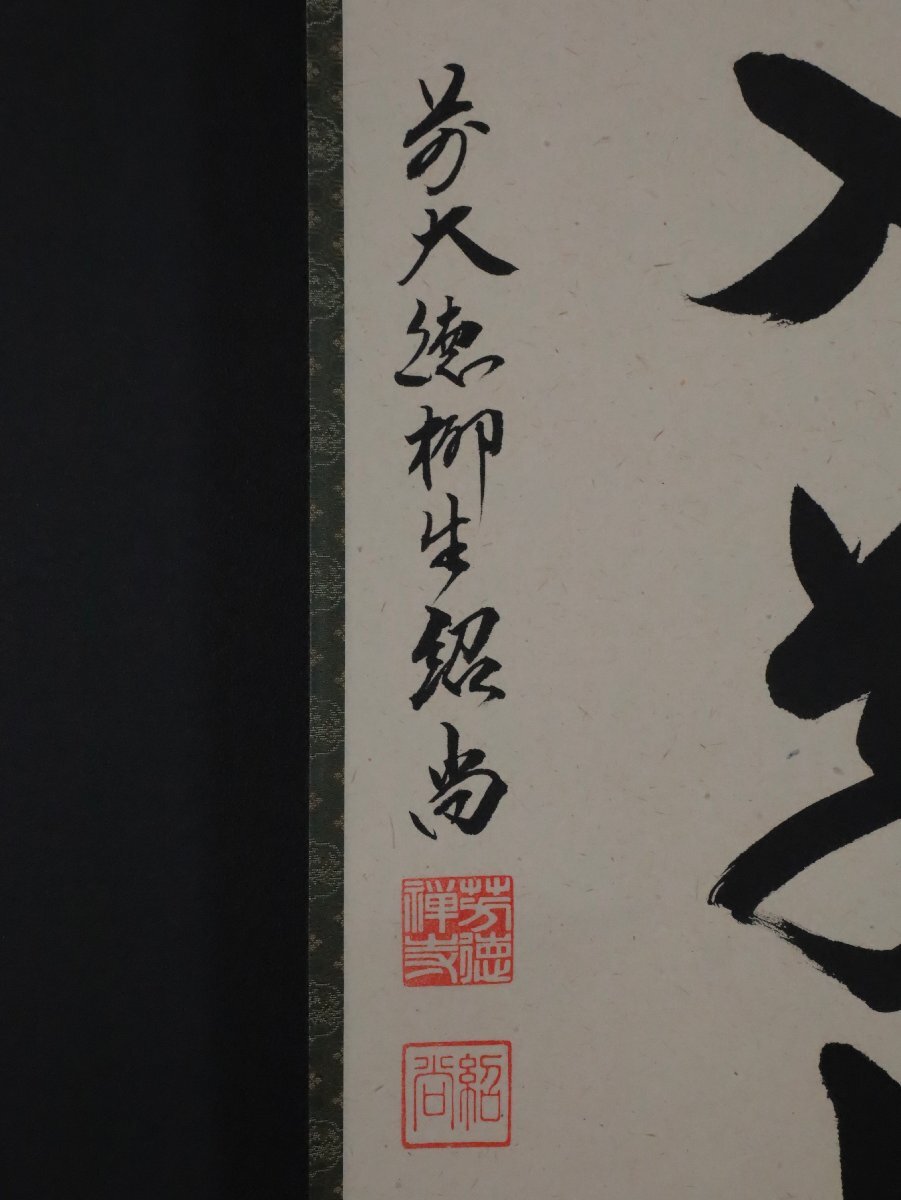 前大徳柳生紹尚
芳徳禅寺
紹尚